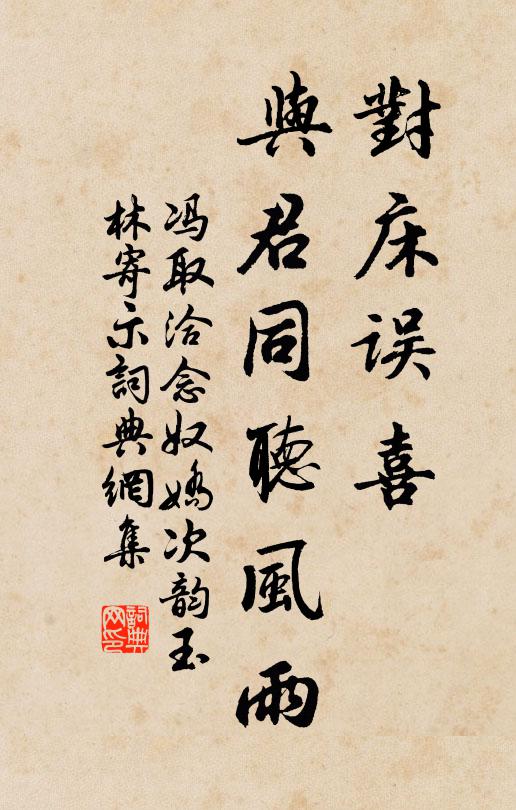 對床误喜
與君同聽風雨
冯取洽念奴嬌次韵玉
林寄示詞典網集
詞典網印